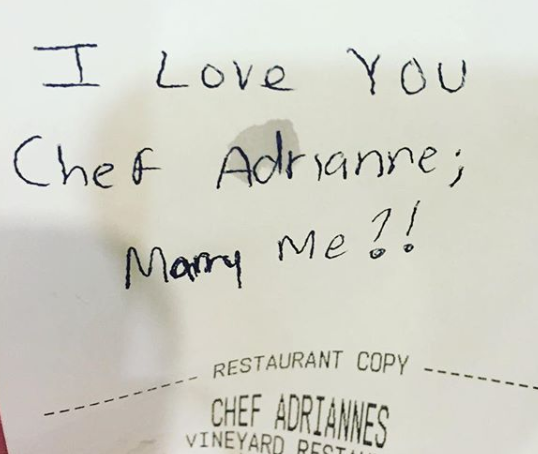 I Love You
Chef Adrianne;
Marry Me?!
RESTAURANT COPY
CHEF ADRIANNES
VINEYARD